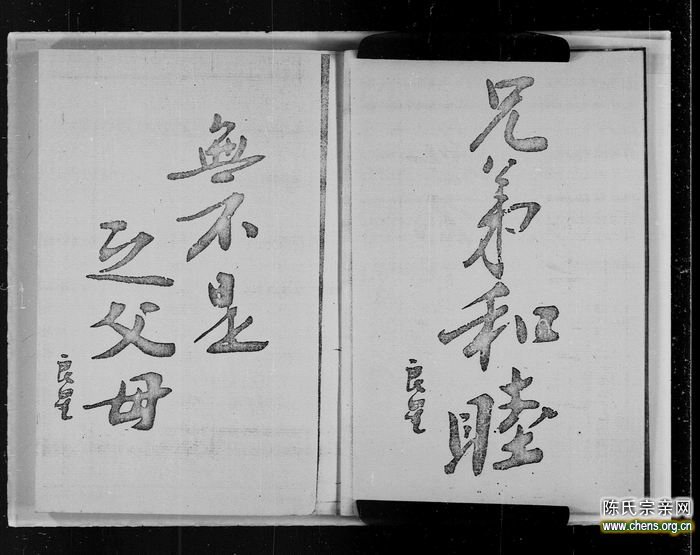 兄弟和睦
良星
無不是
之父母
良星
陈氏宗亲网
www.chens.org.cn